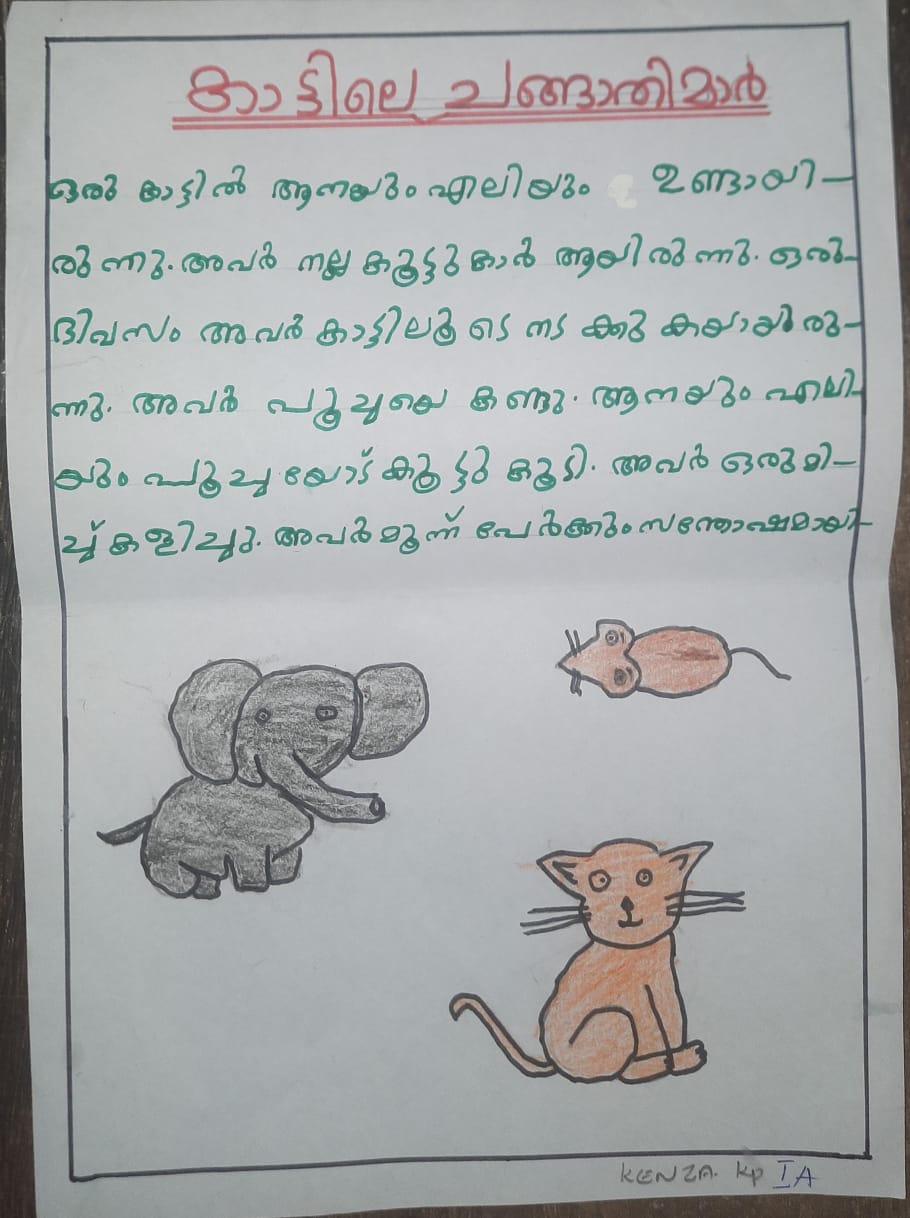 കാട്ടിലെ ചങ്ങാതിമാർ
ഒരു കാട്ടിൽ ആനയും എലിയും ഉണ്ടായി-
രുന്നു. അവർ നല്ല കൂട്ടുകാർ ആയിരുന്നു. ഒരു-
ദിവസം അവർ കാട്ടിലൂടെ നടക്കുകയായിരു-
ന്നു. അവർ പൂച്ചയെ കണ്ടു. ആനയും എലി-
യും പൂച്ചയോട് കൂട്ടു കൂടി. അവർ ഒരുമി-
ച്ച് കളിച്ചു. അവർ മൂന്ന് പേർക്കും സന്തോഷമായി-
KENZA. KP IA